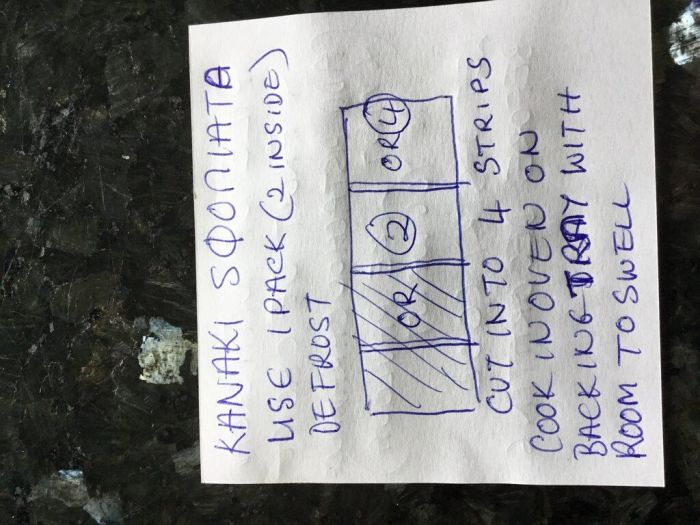 KANAKI SΦOΠIATA
USE 1 PACK (2 INSIDE)
DEFROST
OR 2 OR 4
CUT INTO 4 STRIPS
COOK IN OVEN ON
BACKING TRAY WITH
ROOM TO SWELL